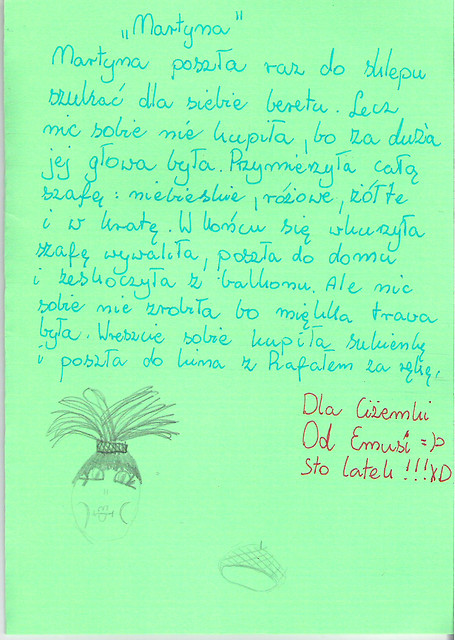 „Martyna"
Martyna poszła raz do sklepu
szukać dla siebie beretu. Lecz
nic sobie nie kupiła, bo za duża
jej głowa była. Przymierzyła całą
szafę: niebieskie, różowe, żółte
i w kratę. W końcu się wkurzyła
szafę wywaliła, poszła do domu
i zeskoczyła z balkonu. Ale nic
sobie nie zrobiła bo miękka trawa
była. Wreszcie sobie kupiła sukienkę
i poszła do kina z Rafałem za rękę.
Dla Ciżemki
Od Emusi =)P
Sto latek !!! XD